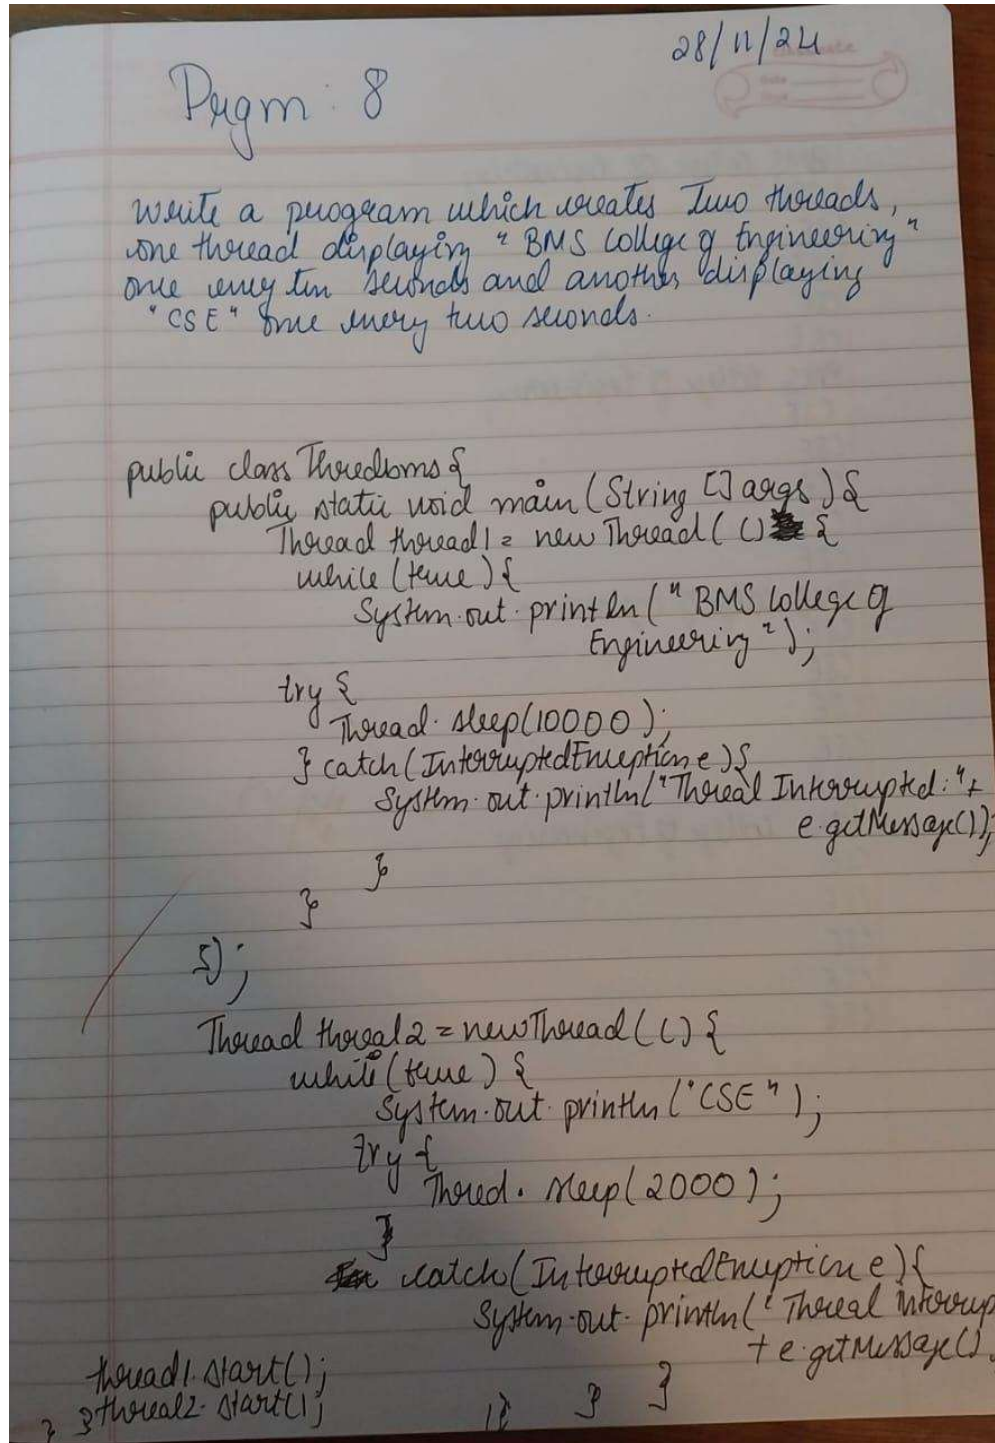 28/11/24
Prgm : 8
Write a program which creates Two threads,
one thread displaying "BMS College of Engineering"
once every ten seconds and another displaying
"CSE" once every two seconds.
public class Thredbms {
public static void main (String [] args) {
Thread thread1 = new Thread ( () {
while (true) {
System.out.println (" BMS College of
Engineering ");
try {
Thread.sleep(10000);
} catch (InterruptedException e) {
System.out.println("Thread Interrupted: " +
e.getMessage());
}
}
});
Thread thread2 = new Thread ( () {
while (true) {
System.out.println ("CSE ");
try {
Thred. sleep(2000);
}
catch (InterruptedException e) {
System.out.println (" Thread interrup
+ e.getMessage().
thread1.start(); } }
} } thread2.start();